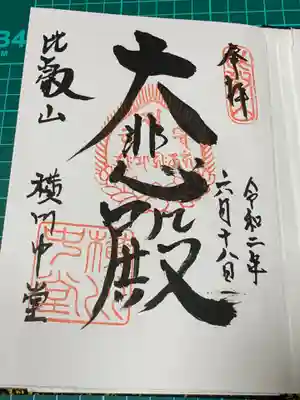 奉拝
令和二年
六月十八日
大悲殿
比叡山
横川中堂